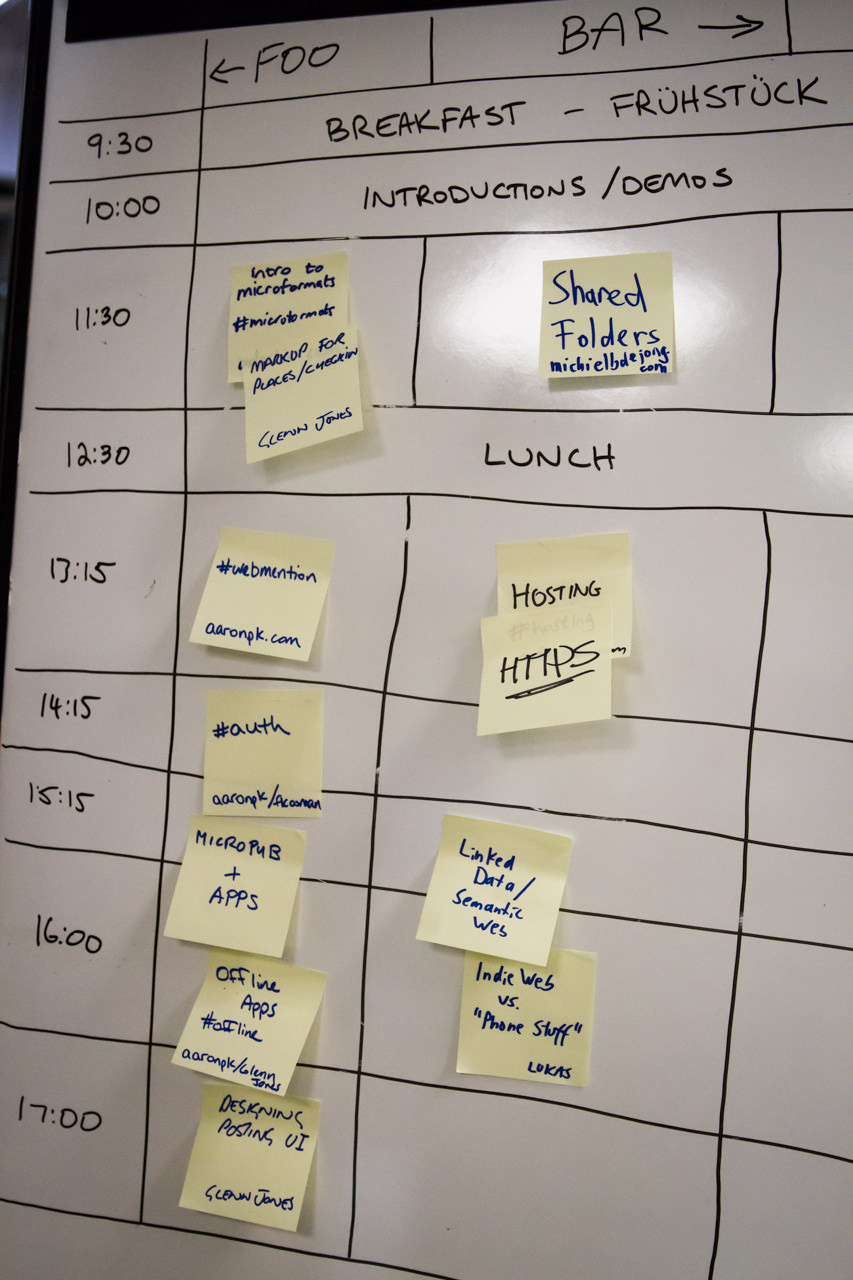 ← FOO
BAR →
9:30
BREAKFAST - FRÜHSTÜCK
10:00
INTRODUCTIONS / DEMOS
11:30
Intro to
microformats
#microformats
MARKUP FOR
PLACES/CHECKIN
GLENN JONES
Shared
Folders
michielbdejong.
com
12:30
LUNCH
13:15
#webmention
aaronpk.com
HOSTING
#hosting
HTTPS
m
14:15
#auth
aaronpk/
15:15
MICROPUB
+
APPS
Linked
Data/
Semantic
Web
16:00
Offline
Apps
#offline
aaronpk/Glenn
Jones
Indie Web
vs.
"Phone Stuff"
LUKAS
17:00
DESIGNING
POSTING UI
GLENN JONES